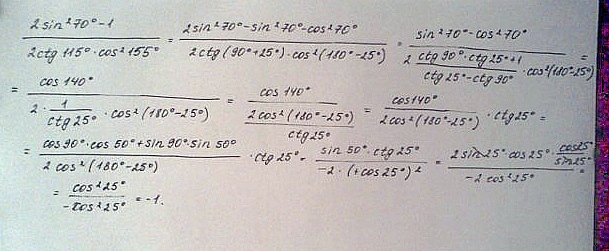 (2sin²70°-1)/(2ctg115°·cos²155°) = (2sin²70°-sin²70°-cos²70°)/(2ctg(90°+25°)·cos²(180°-25°)) = (sin²70°-cos²70°)/(2 (ctg90°·ctg25°+1)/(ctg25°-ctg90°) ·cos²(180°-25°)) =
= (cos140°)/(2·(1/ctg25°)·cos²(180°-25°)) = (cos140°)/((2cos²(180°-25°))/ctg25°) = (cos140°)/(2cos²(180°-25°)) · ctg25° =
= (cos90°·cos50°+sin90°·sin50°)/(2cos²(180°-25°)) · ctg25° = (sin50°·ctg25°)/(-2·(+cos25°)²) = (2sin25°·cos25°·(cos25°/sin25°))/(-2cos²25°) =
= (cos²25°)/(-cos²25°) = -1.